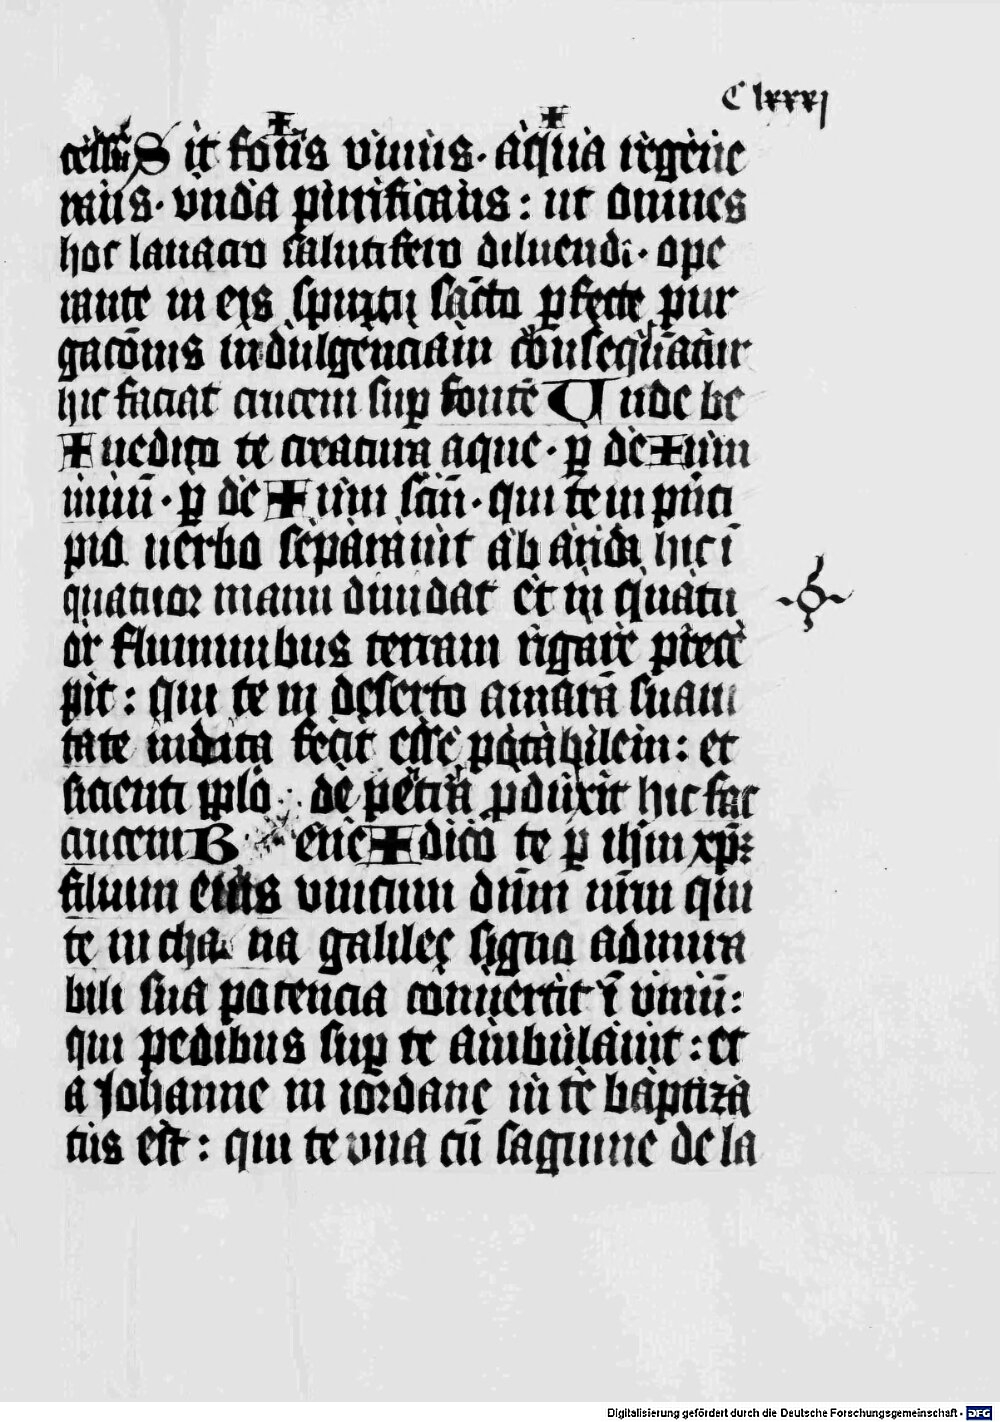 C lxxxj
cēssiꝰ Sit fons viuus. aqua regene
rans. vnda purificans: ut omnes
hoc lauacro salutifero diluendi. ope
rante in eis spiritu sancto perfecte pur
gacōnis indulgenciam consequātur
hic faciat crucem suꝑ fontē Unde be
✠nedico te creatura aque. ꝑ de✠um
uiuū. ꝑ de✠um scm̄. qui te in prīci
pio uerbo separauit ab arida hic ī
quatuor manu diuidat Et in quatu
or fluminibus terram rigare prece
pit: qui te in deserto amarā suaui
tate indita fecit esse potabilem: et
sicienti ꝓplo. de petra ꝓduxit hic fac
crucem Bene✠dico te ꝑ ihm xpm
filium eius vnicum dūm nrm qui
te in chana galilee signo admira
bili sua potencia conuertit ī vinū:
qui pedibus suꝑ te ambulauit: et
a Johanne in iordane in te baptiza
tus est: qui te vna cū sagwine de la
Digitalisierung gefördert durch die Deutsche Forschungsgemeinschaft - DFG